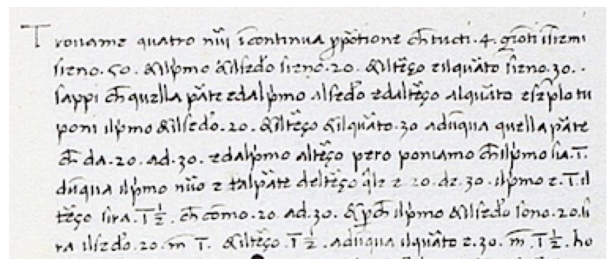 Trouame quatro nũi ĩcontinua ꝓpõtione ch̃ tucti .4. gionti ĩsiemi
sieno .50. &ilpͥmo &ilsedõ sieno .20. &iltẽço eilquãto sieno .30.
sappi ch̃ quella pãte e dalpͥmo alsedõ e daltẽço alquãto esẽplo tu
poni ilpͥmo &ilsedõ .20. &iltẽço &ilquãto .30 adũqua quella pãte
ch̃ da .20. ad .30. e dalpͥmo altẽço pero poniamo ch̃ ilpͥmo sia .1̅.
dũqua ilpͥmo nũo e tal pãte deltẽço q̃le e 20. de .30. ilpͥmo e .1̅. il
tẽço sira .1̅ ½. ch̃ cõmo .20. ad .30. & ꝑch̃ ilpͥmo &ilsedõ sono .20. si
ra ilsedõ .20. m̅ 1̅. &iltẽço .1̅ ½. adũqua ilquãto e .30. m̅ .1̅ ½. ho